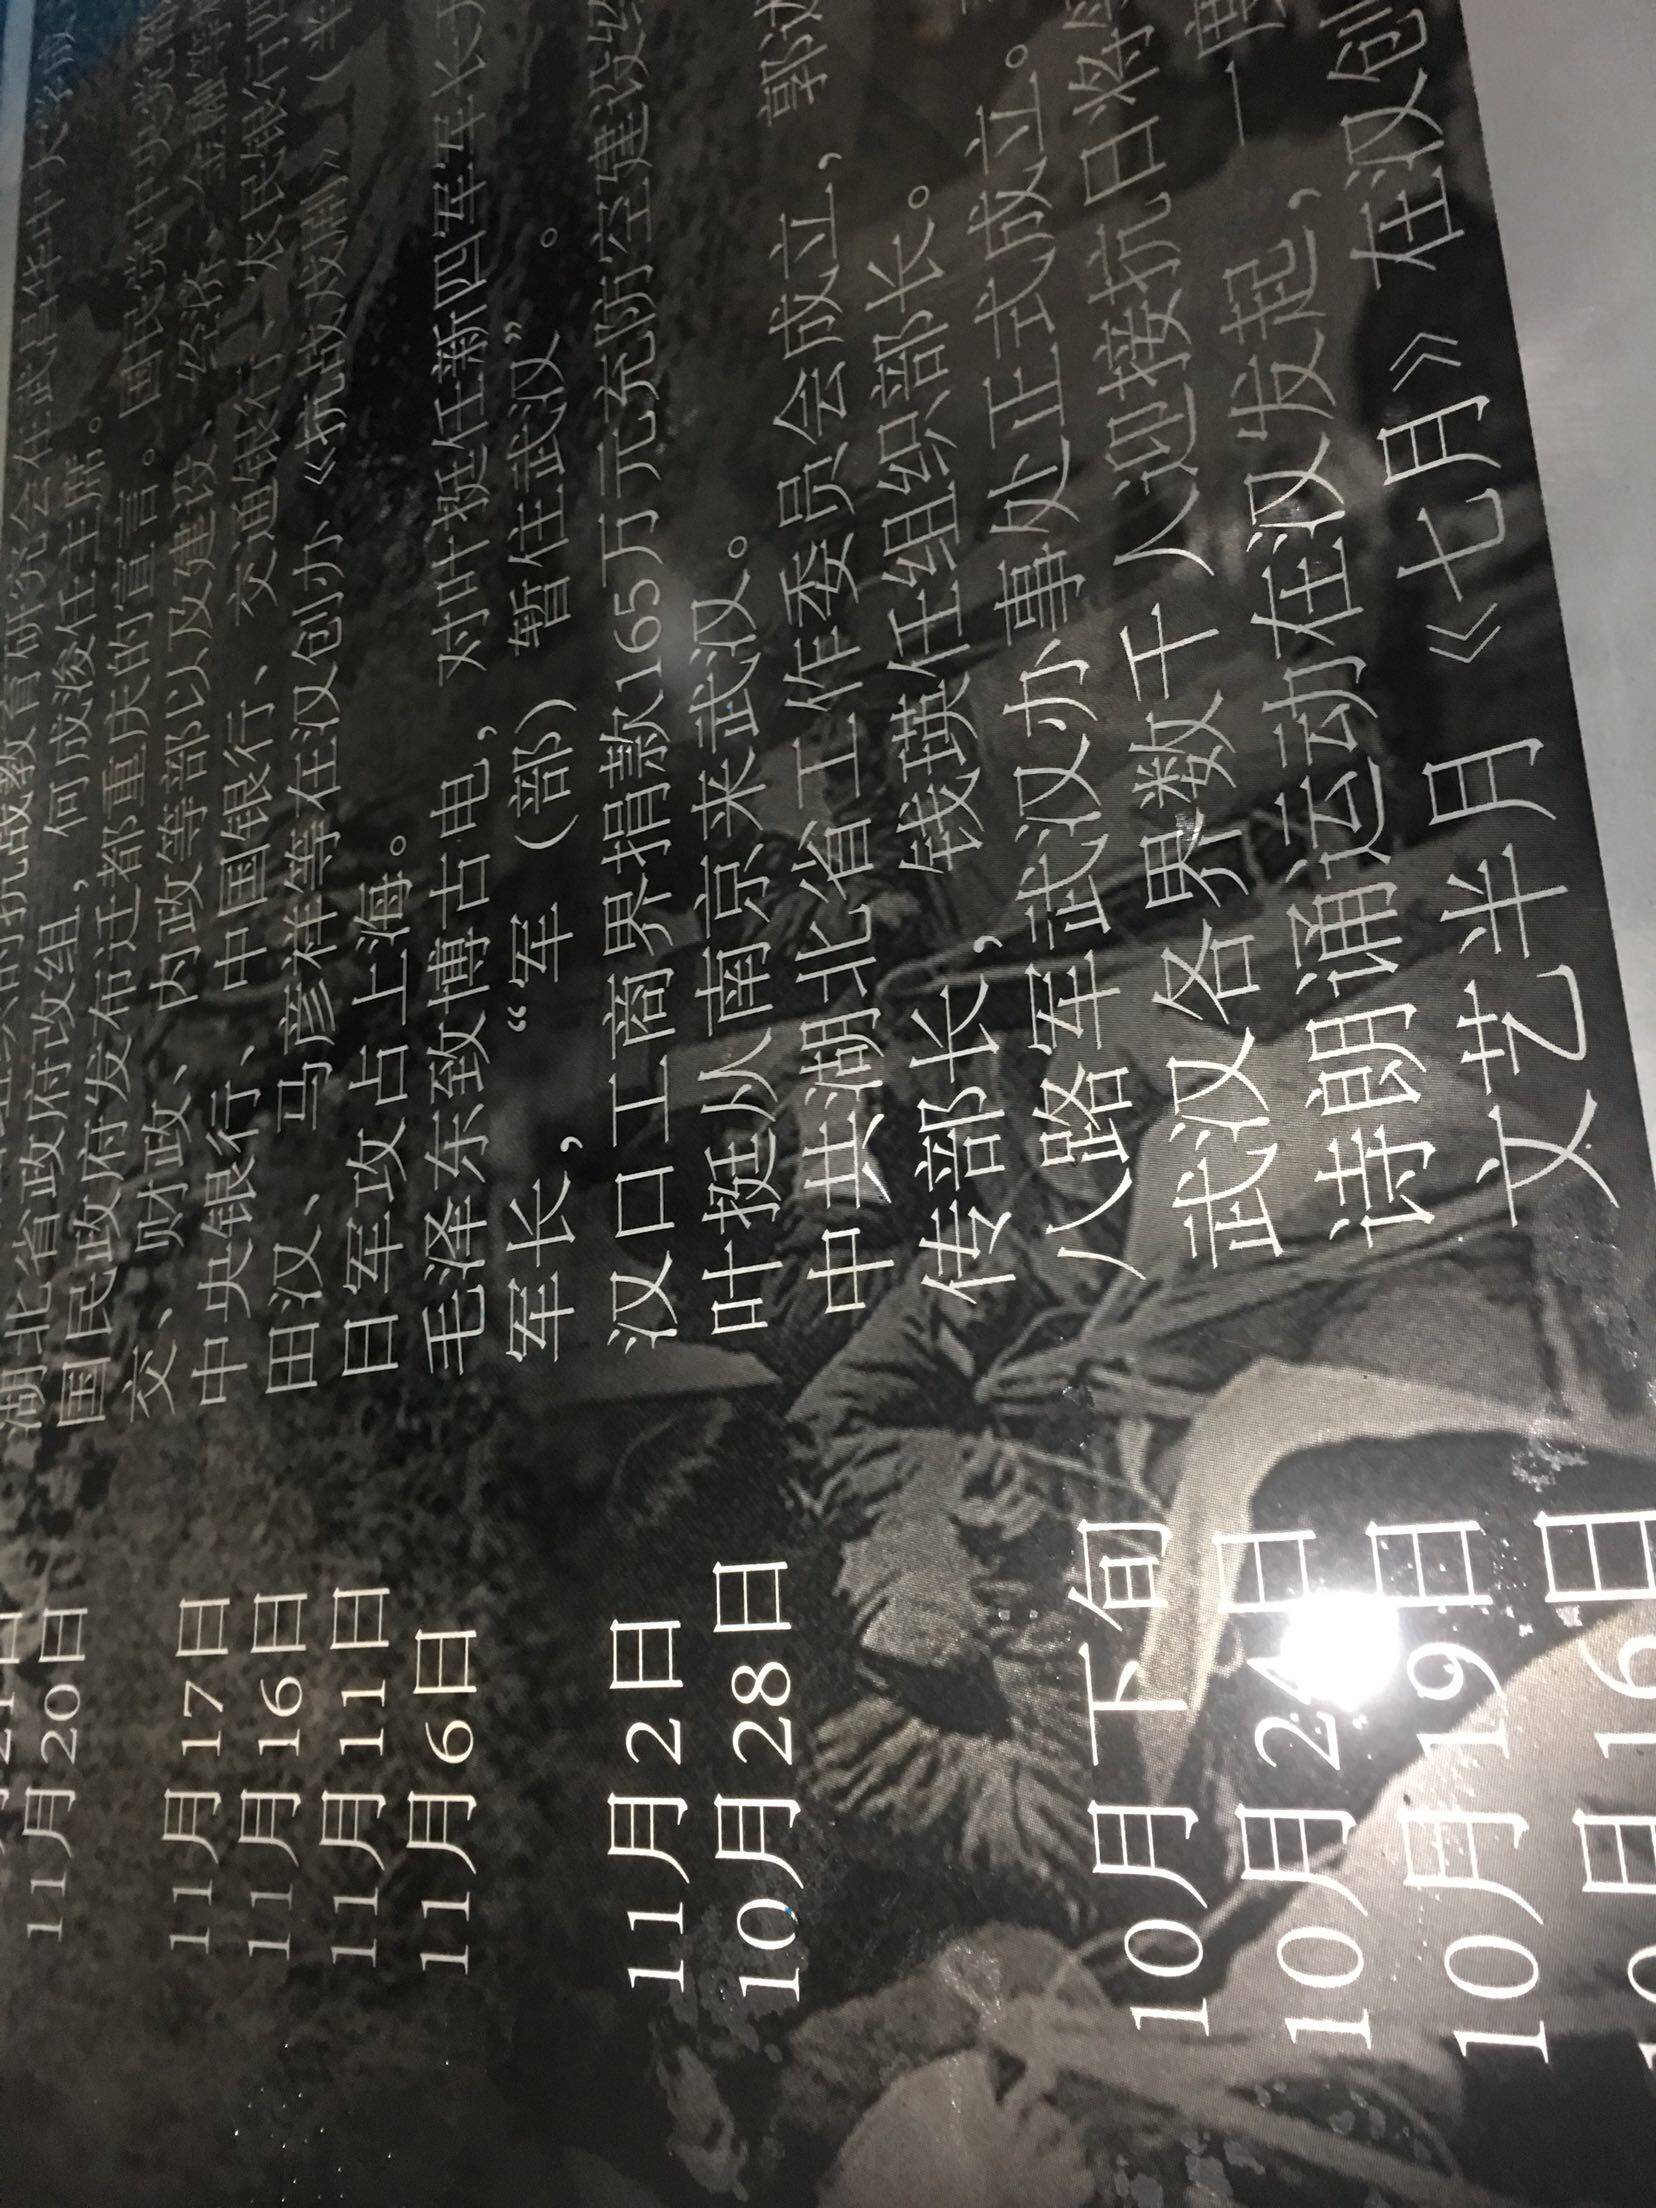 湖北省政府改组，何成浚任主席。
11月20日 国民政府发布迁都重庆的宣言。国民党中央党
交、财政、内政等部以及建设、经济、金融等
11月17日 中央银行、中国银行、交通银行、农民银行
11月16日 田汉、马彦祥等在汉创办《抗战戏剧》（半
11月11日 日军攻占上海。
11月6日 毛泽东致博古电，对叶挺任新四军军长
军长，“军（部）暂住武汉”。
11月2日 汉口工商界捐款165万元充防空建设
10月28日 叶挺从南京来武汉。
中共湖北省工作委员会成立，郭述
传部长，钱瑛任组织部长。
10月下旬 八路军武汉办事处正式成立。
10月24日 武汉各界数千人迎接抗日将
10月19日 诗朗诵运动在汉发起，一
10月16日 文艺半月《七月》在汉创